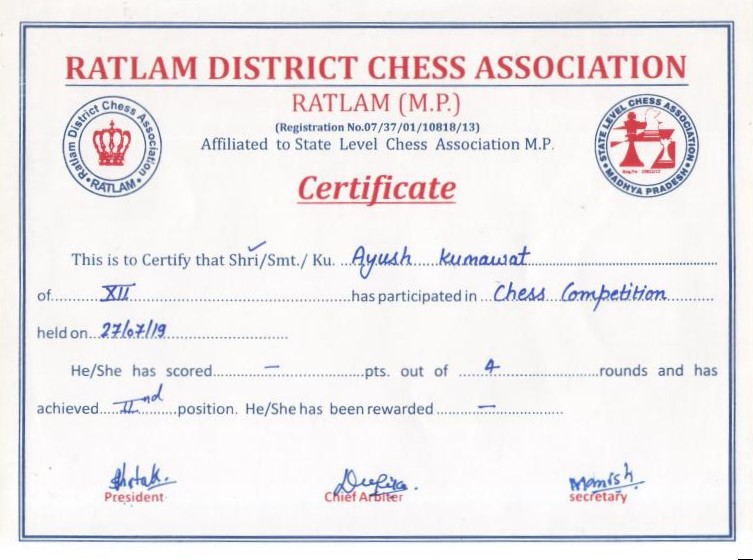 RATLAM DISTRICT CHESS ASSOCIATION
RATLAM (M.P.)
(Registration No.07/37/01/10818/13)
Affiliated to State Level Chess Association M.P.
Ratlam District Chess Association
• RATLAM •
STATE LEVEL CHESS ASSOCIATION
• MADHYA PRADESH •
Certificate
This is to Certify that Shri/Smt./ Ku. Ayush Kumawat
of XII has participated in Chess Competition
held on 27/07/19
He/She has scored — pts. out of 4 rounds and has
achieved IInd position. He/She has been rewarded —
Manish
President Chief Arbiter secretary